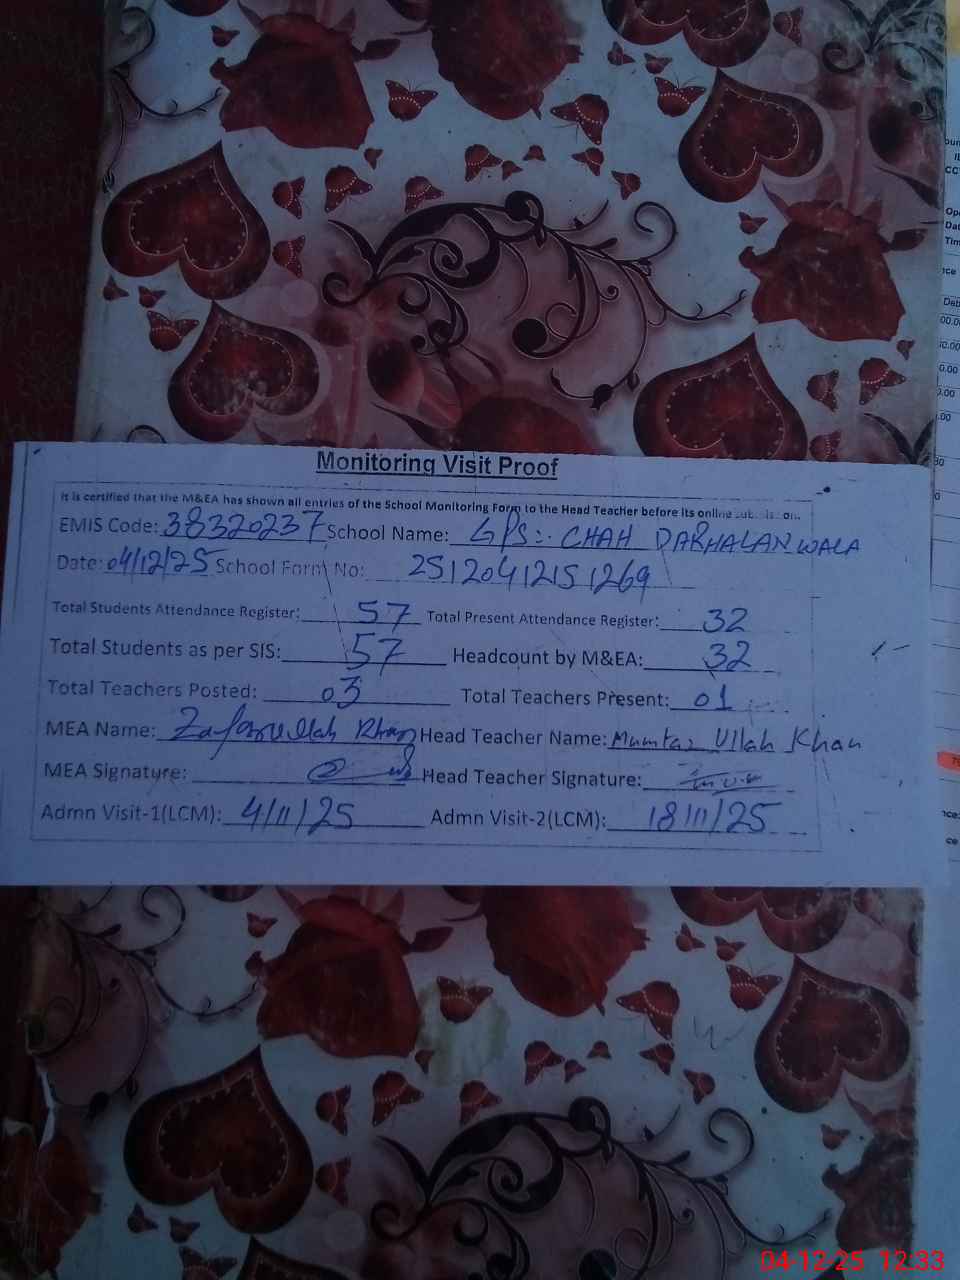 Monitoring Visit Proof
It is certified that the M&EA has shown all entries of the School Monitoring Form to the Head Teacher before its online submission.
EMIS Code: 38320237 School Name: GPS:. CHAH DARHALAN WALA
Date: 04/12/25 School Form No: 25120412151269
Total Students Attendance Register: 57 Total Present Attendance Register: 32
Total Students as per SIS: 57 Headcount by M&EA: 32
Total Teachers Posted: 03 Total Teachers Present: 01
MEA Name: Zafarullah Khan Head Teacher Name: Mumtaz Ullah Khan
MEA Signature: Head Teacher Signature:
Admn Visit-1(LCM): 4/11/25 Admn Visit-2(LCM): 18/11/25
04-12-25 12:33